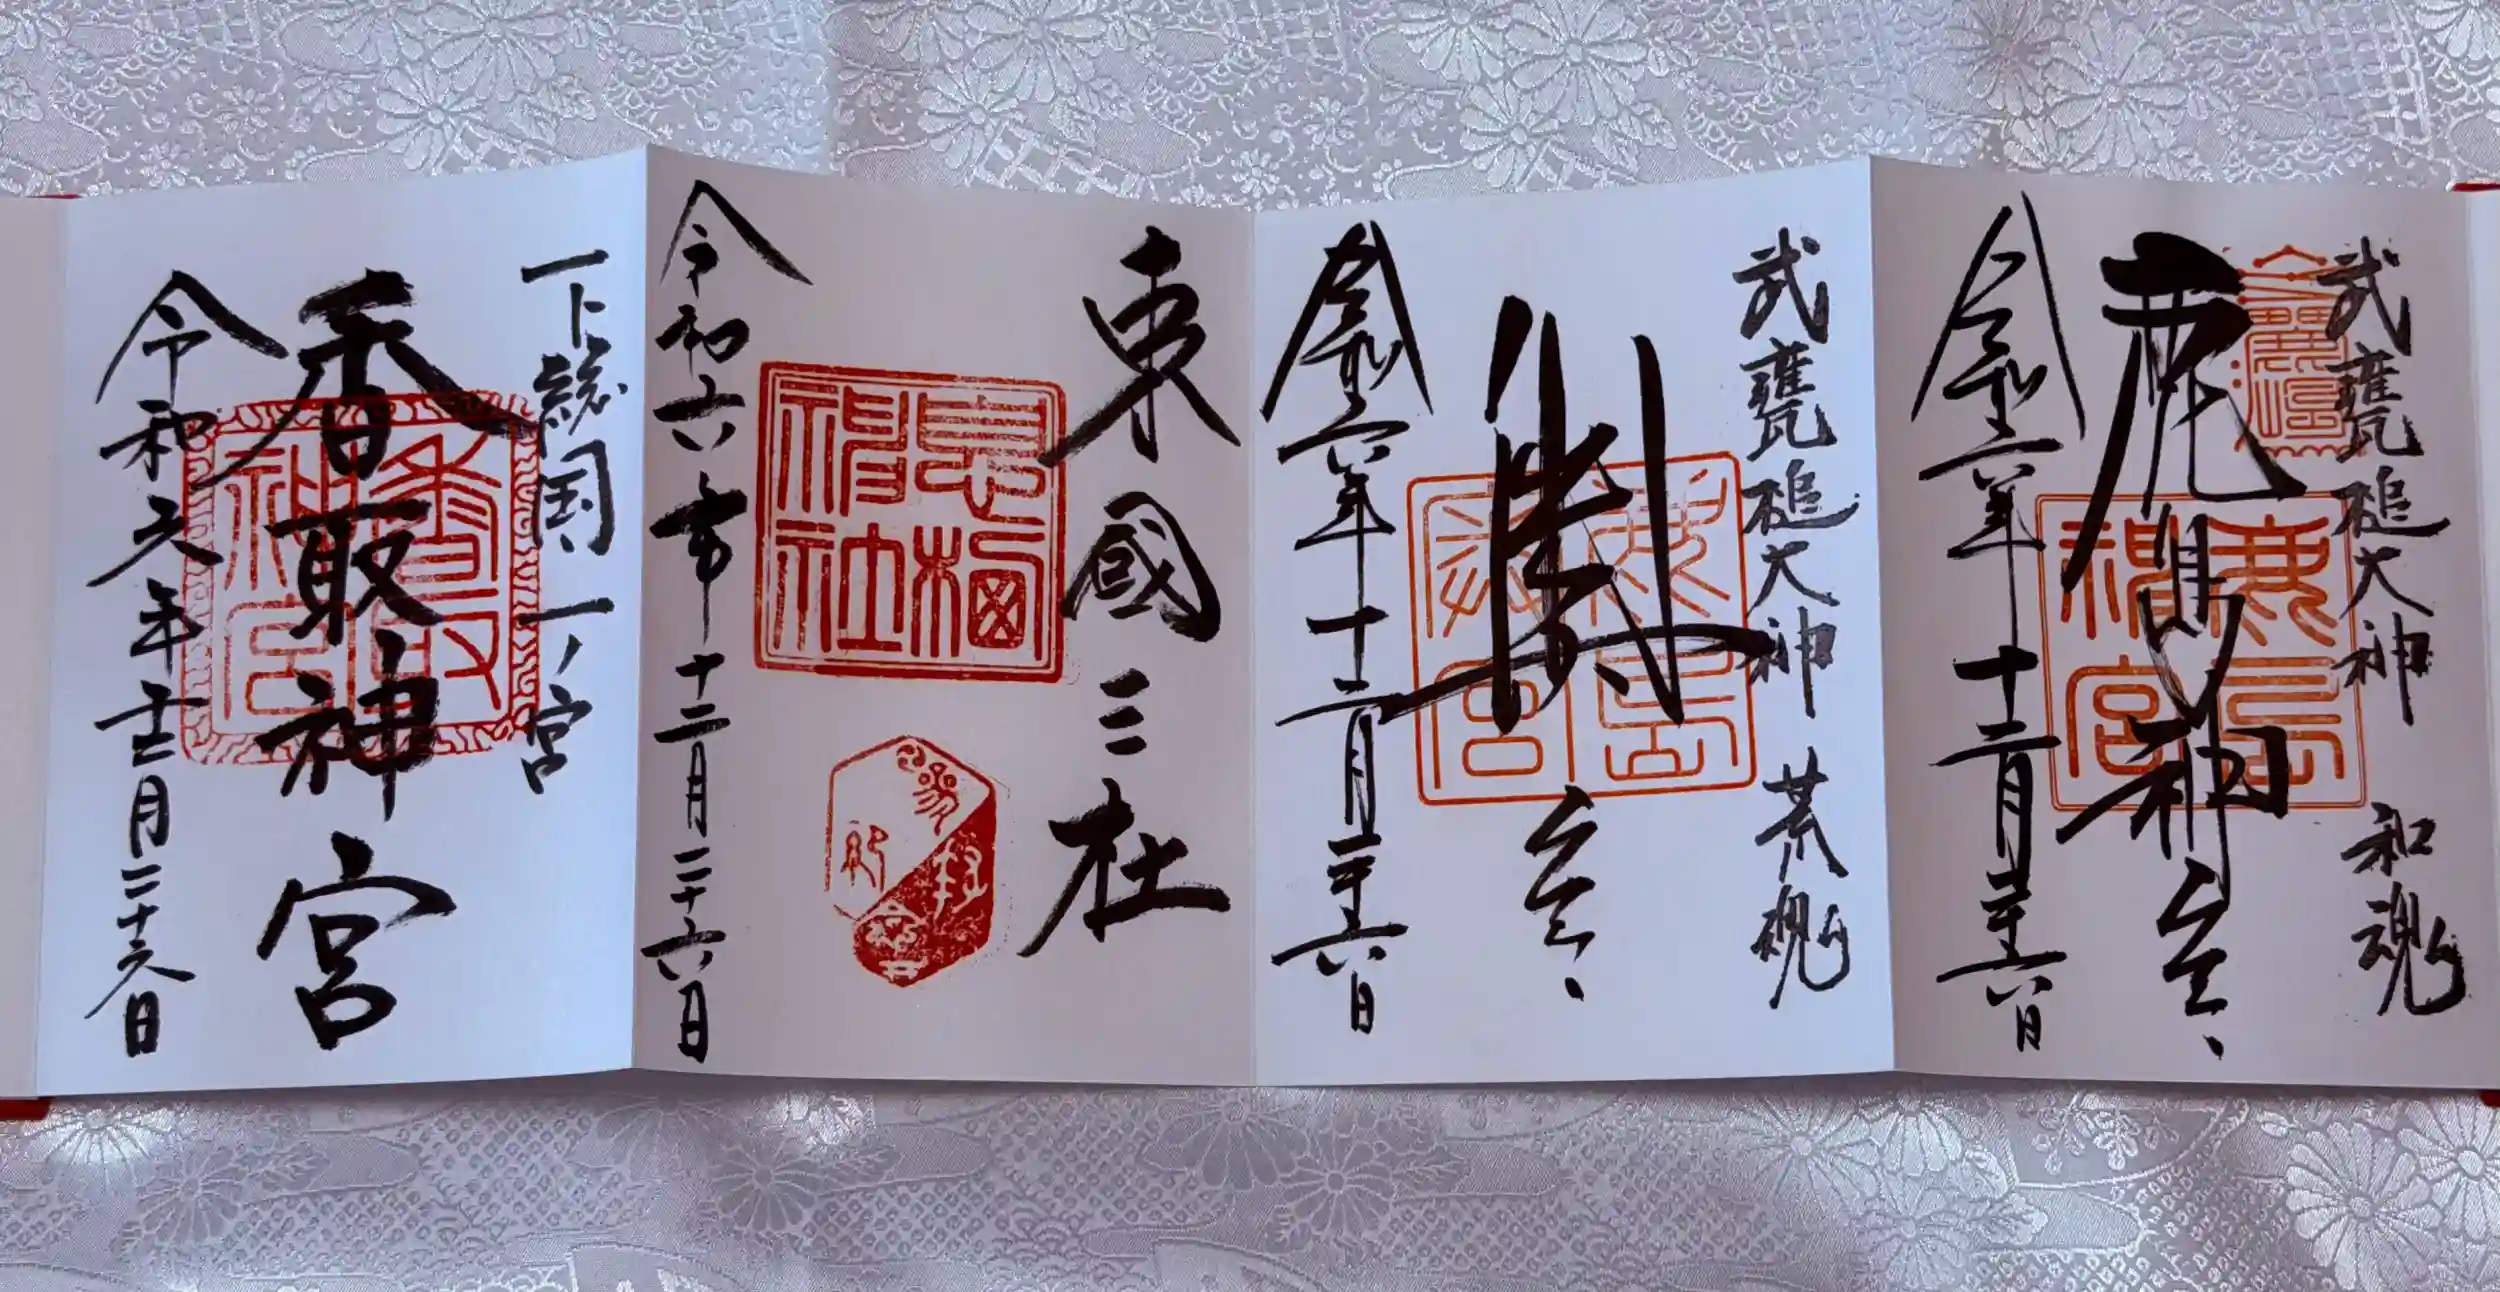 武甕槌大神 和魂
鹿島神宮
鹿島神宮
令和六年十二月二十六日
武甕槌大神 荒魂
奥宮
鹿島奥宮
令和六年十二月二十六日
東國三社
息栖神社
令和六年十二月二十六日
下総国一ノ宮
香取神宮
香取神宮
令和六年十二月二十六日